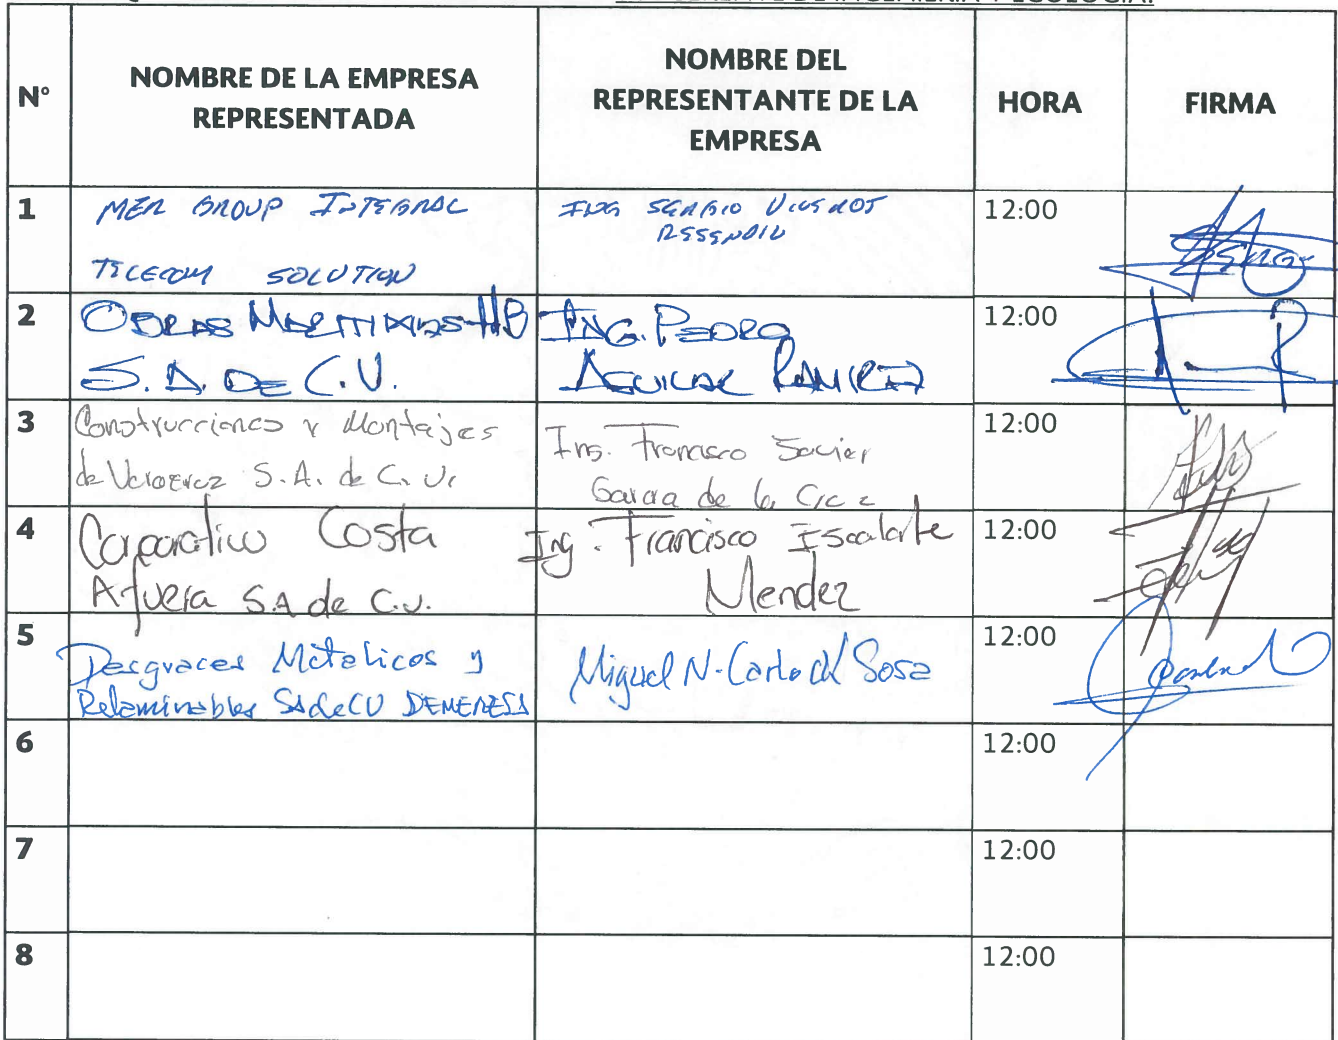 Nº
NOMBRE DE LA EMPRESA
REPRESENTADA
NOMBRE DEL
REPRESENTANTE DE LA
EMPRESA
HORA
FIRMA
1
MER GROUP INTEGRAL
TELECOM SOLUTION
ING SERGIO
12:00
2
OBRAS MARITIMAS HB
S.A. DE C.V.
ING. PEDRO
AGUILAR RAMIREZ
12:00
3
Construcciones y Montajes
de Veracruz S.A. de C.V.
Ing. Francisco Javier
Garcia de la
12:00
4
Corporativo Costa
Afuera S.A de C.V.
Ing. Francisco Escalante
Mendez
12:00
5
Desgraces Metalicos y
Relaminables SA de CV DEMERESA
Miguel N. Carlo del Sosa
12:00
6
12:00
7
12:00
8
12:00